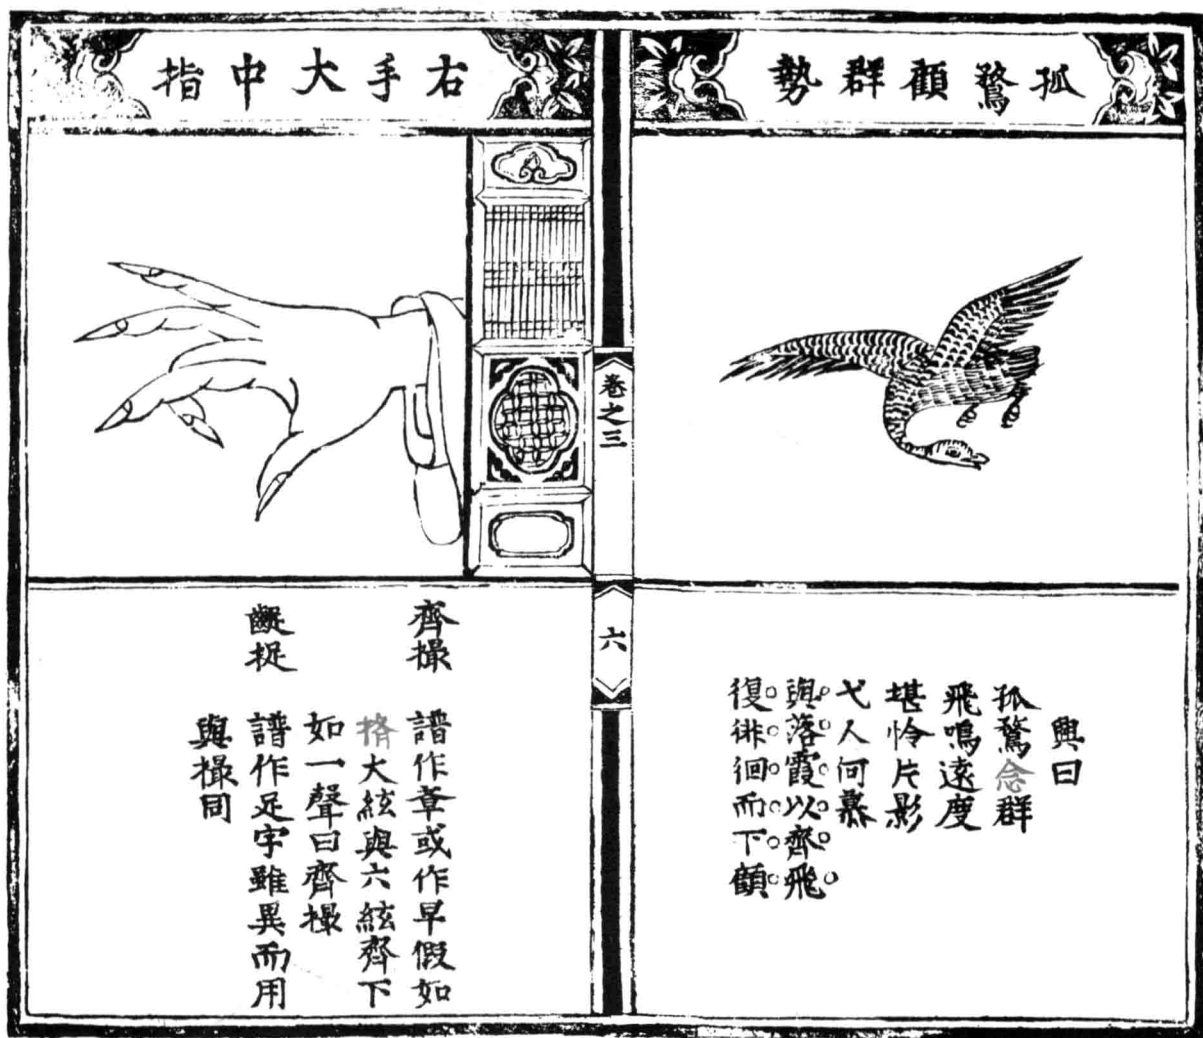 孤鶩顧群勢
興曰
孤鶩念群
飛鳴遠度
堪怜片影
弋人何慕
與落霞以齊飛
復徘徊而下顧
卷之三
六
右手大中指
齊撮
譜作章或作早假如
大絃與六絃齊下
如一聲曰齊撮
齪捉
譜作足字雖異而用
與撮同